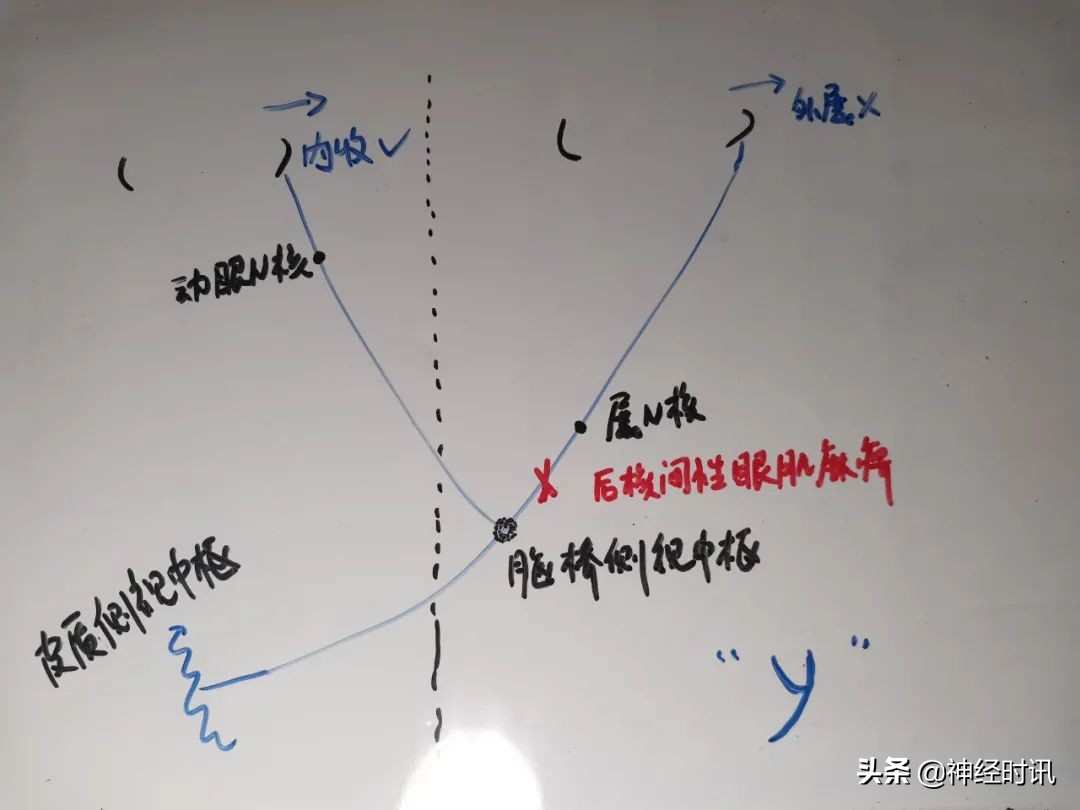 外展 ×
内收 √
动眼N核
展N核
后核间性眼肌麻痹
脑桥侧视中枢
皮质侧视中枢
“y”
头条 @神经时讯